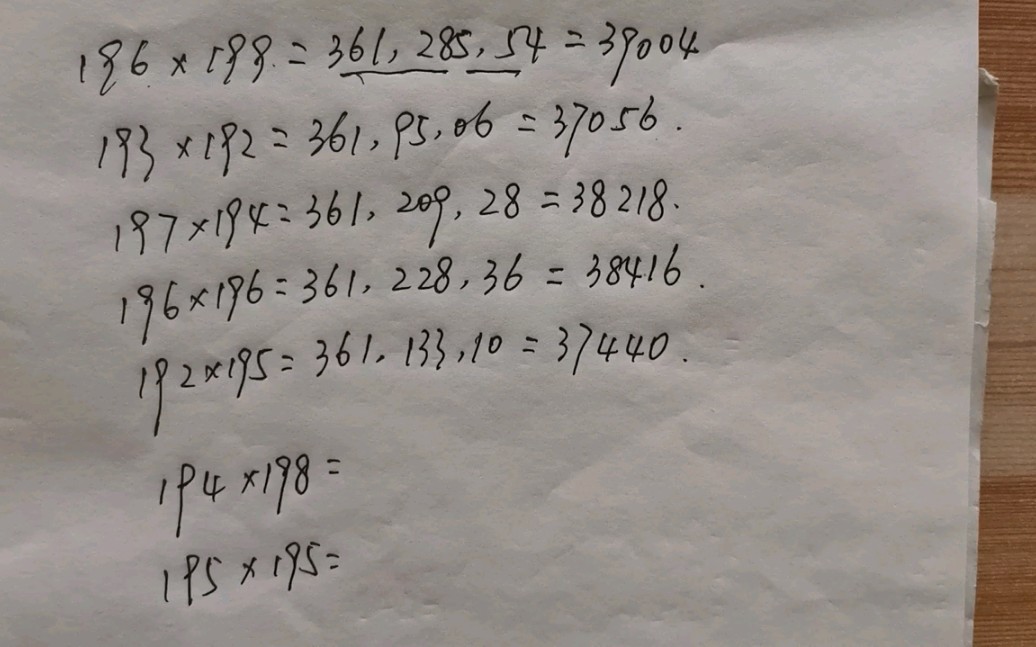 196 × 199 = 361, 285, 54 = 39004
193 × 192 = 361, 95, 06 = 37056.
197 × 194 = 361, 209, 28 = 38218.
196 × 196 = 361, 228, 36 = 38416.
192 × 195 = 361, 133, 10 = 37440.
194 × 198 =
195 × 195 =